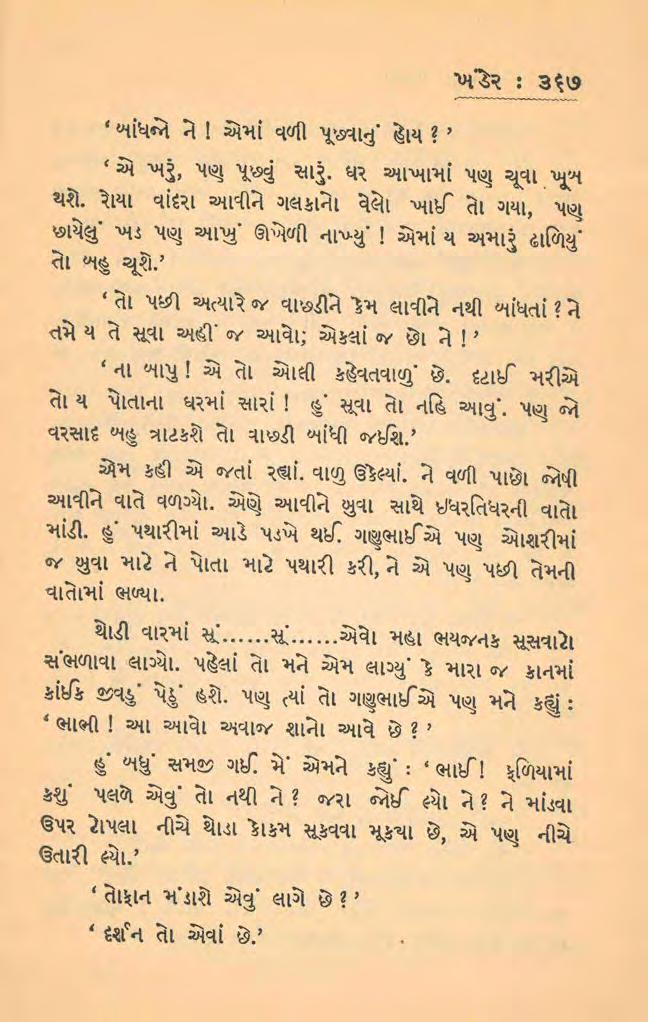 ખંડેર : ૩૬૭
‘બાંધજો ને ! એમાં વળી પૂછવાનું હોય ?’
‘એ ખરું, પણ પૂછવું સારું. ઘર આખામાં પણ ચૂવા ખૂબ
થશે. રોયા વાંદરા આવીને ગલકાનો વેલો ખાઈ તો ગયા, પણ
છાયેલું ખડ પણ આખું ઊખેળી નાખ્યું ! એમાં ય અમારું ઢાળિયું
તો બહુ ચૂશે.’
‘તો પછી અત્યારે જ વાછડીને કેમ લાવીને નથી બાંધતાં ? ને
તમે ય તે સૂવા અહીં જ આવો; એકલાં જ છો ને !’
‘ના બાપુ ! એ તો ઓલી કહેવતવાળું છે. દટાઈ મરીએ
તો ય પોતાના ઘરમાં સારાં ! હું સૂવા તો નહિ આવું. પણ જો
વરસાદ બહુ ત્રાટકશે તો વાછડી બાંધી જઈશ.’
એમ કહી એ જતાં રહ્યાં. વાળુ ઉકેલ્યાં. ને વળી પાછો જોષી
આવીને વાતે વળગ્યો. એણે આવીને બુવા સાથે ઈધરતિધરની વાતો
માંડી. હું પથારીમાં આડે પડખે થઈ. ગણુભાઈએ પણ ઓશરીમાં
જ બુવા માટે ને પોતા માટે પથારી કરી, ને એ પણ પછી તેમની
વાતોમાં ભળ્યા.
થોડી વારમાં સૂં......સૂં......એવો મહા ભયજનક સૂસવાટો
સંભળાવા લાગ્યો. પહેલાં તો મને એમ લાગ્યું કે મારા જ કાનમાં
કાંઈક જીવડું પેઠું હશે. પણ ત્યાં તો ગણુભાઈએ પણ મને કહ્યું :
‘ભાભી ! આ આવો અવાજ શાનો આવે છે ?’
હું બધું સમજી ગઈ. મેં એમને કહ્યું : ‘ભાઈ ! ફળિયામાં
કશું પલળે એવું તો નથી ને ? જરા જોઈ લ્યો ને ? ને માંડવા
ઉપર ટોપલા નીચે થોડા કોકમ સૂકવવા મૂક્યા છે, એ પણ નીચે
ઉતારી લ્યો.’
‘તોફાન મંડાશે એવું લાગે છે ?’
‘દર્શન તો એવાં છે.’